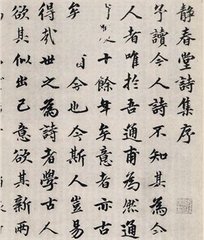 静春堂詩集序
予讀今人詩不知其為今
人者唯於吾通甫為然通
人十餘年矣意者亦古
矣今也今斯人豈易
得哉世之為詩者學古人
欲其似出己意欲其新兩